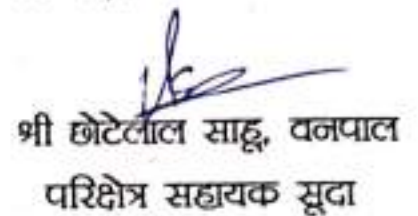 श्री छोटेलाल साहू, वनपाल
परिक्षेत्र सहायक सूदा